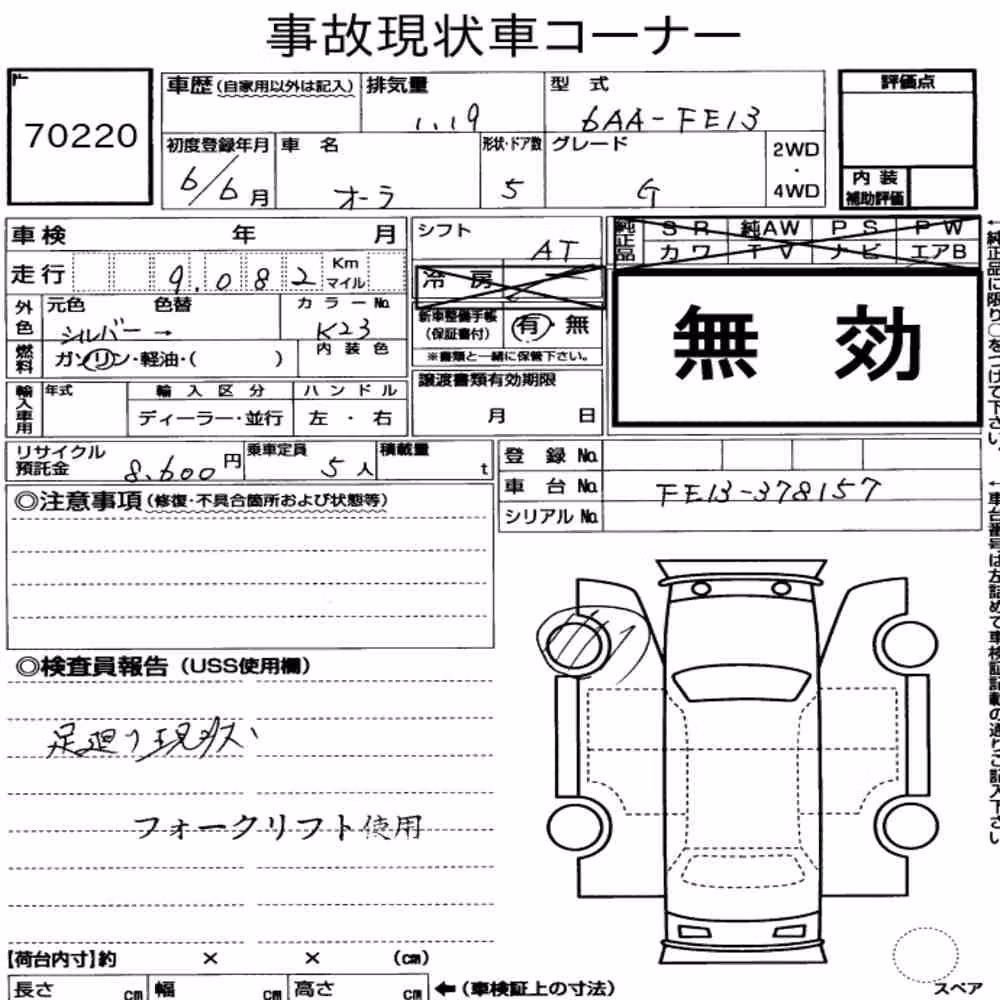 事故現状車コーナー
70220
車歴(自家用以外は記入) 排気量 型式 評価点
1.19 6AA-FE13
初度登録年月 車名 形状・ドア数 グレード 2WD・4WD
6/6月 オーラ 5 G
内装補助評価
車検 年 月
シフト AT
純正品 SR 純AW PS PW
カワ TV ナビ エアB
走行 9.082 Km マイル
冷房
外色 元色 色替 カラーNo.
シルバー→ K23
新車整備手帳(保証書付) 有・無
※書類と一緒に保管下さい。
無効
燃料 ガソリン・軽油・( ) 内装色
輸入車用 年式 輸入区分 ハンドル
ディーラー・並行 左・右
譲渡書類有効期限
月 日
リサイクル預託金 8.600円 乗車定員 5人 積載量 t
登録No.
車台No. FE13-378157
シリアルNo.
◎注意事項(修復・不具合箇所および状態等)
◎検査員報告(USS使用欄)
足廻り現状
フォークリフト使用
【荷台内寸】約 × × (cm)
長さ cm 幅 cm 高さ cm ←(車検証上の寸法)
スペア
←純正品に限り○をつけて下さい。
←車台番号は左詰めで車検証記載の通りご記入下さい